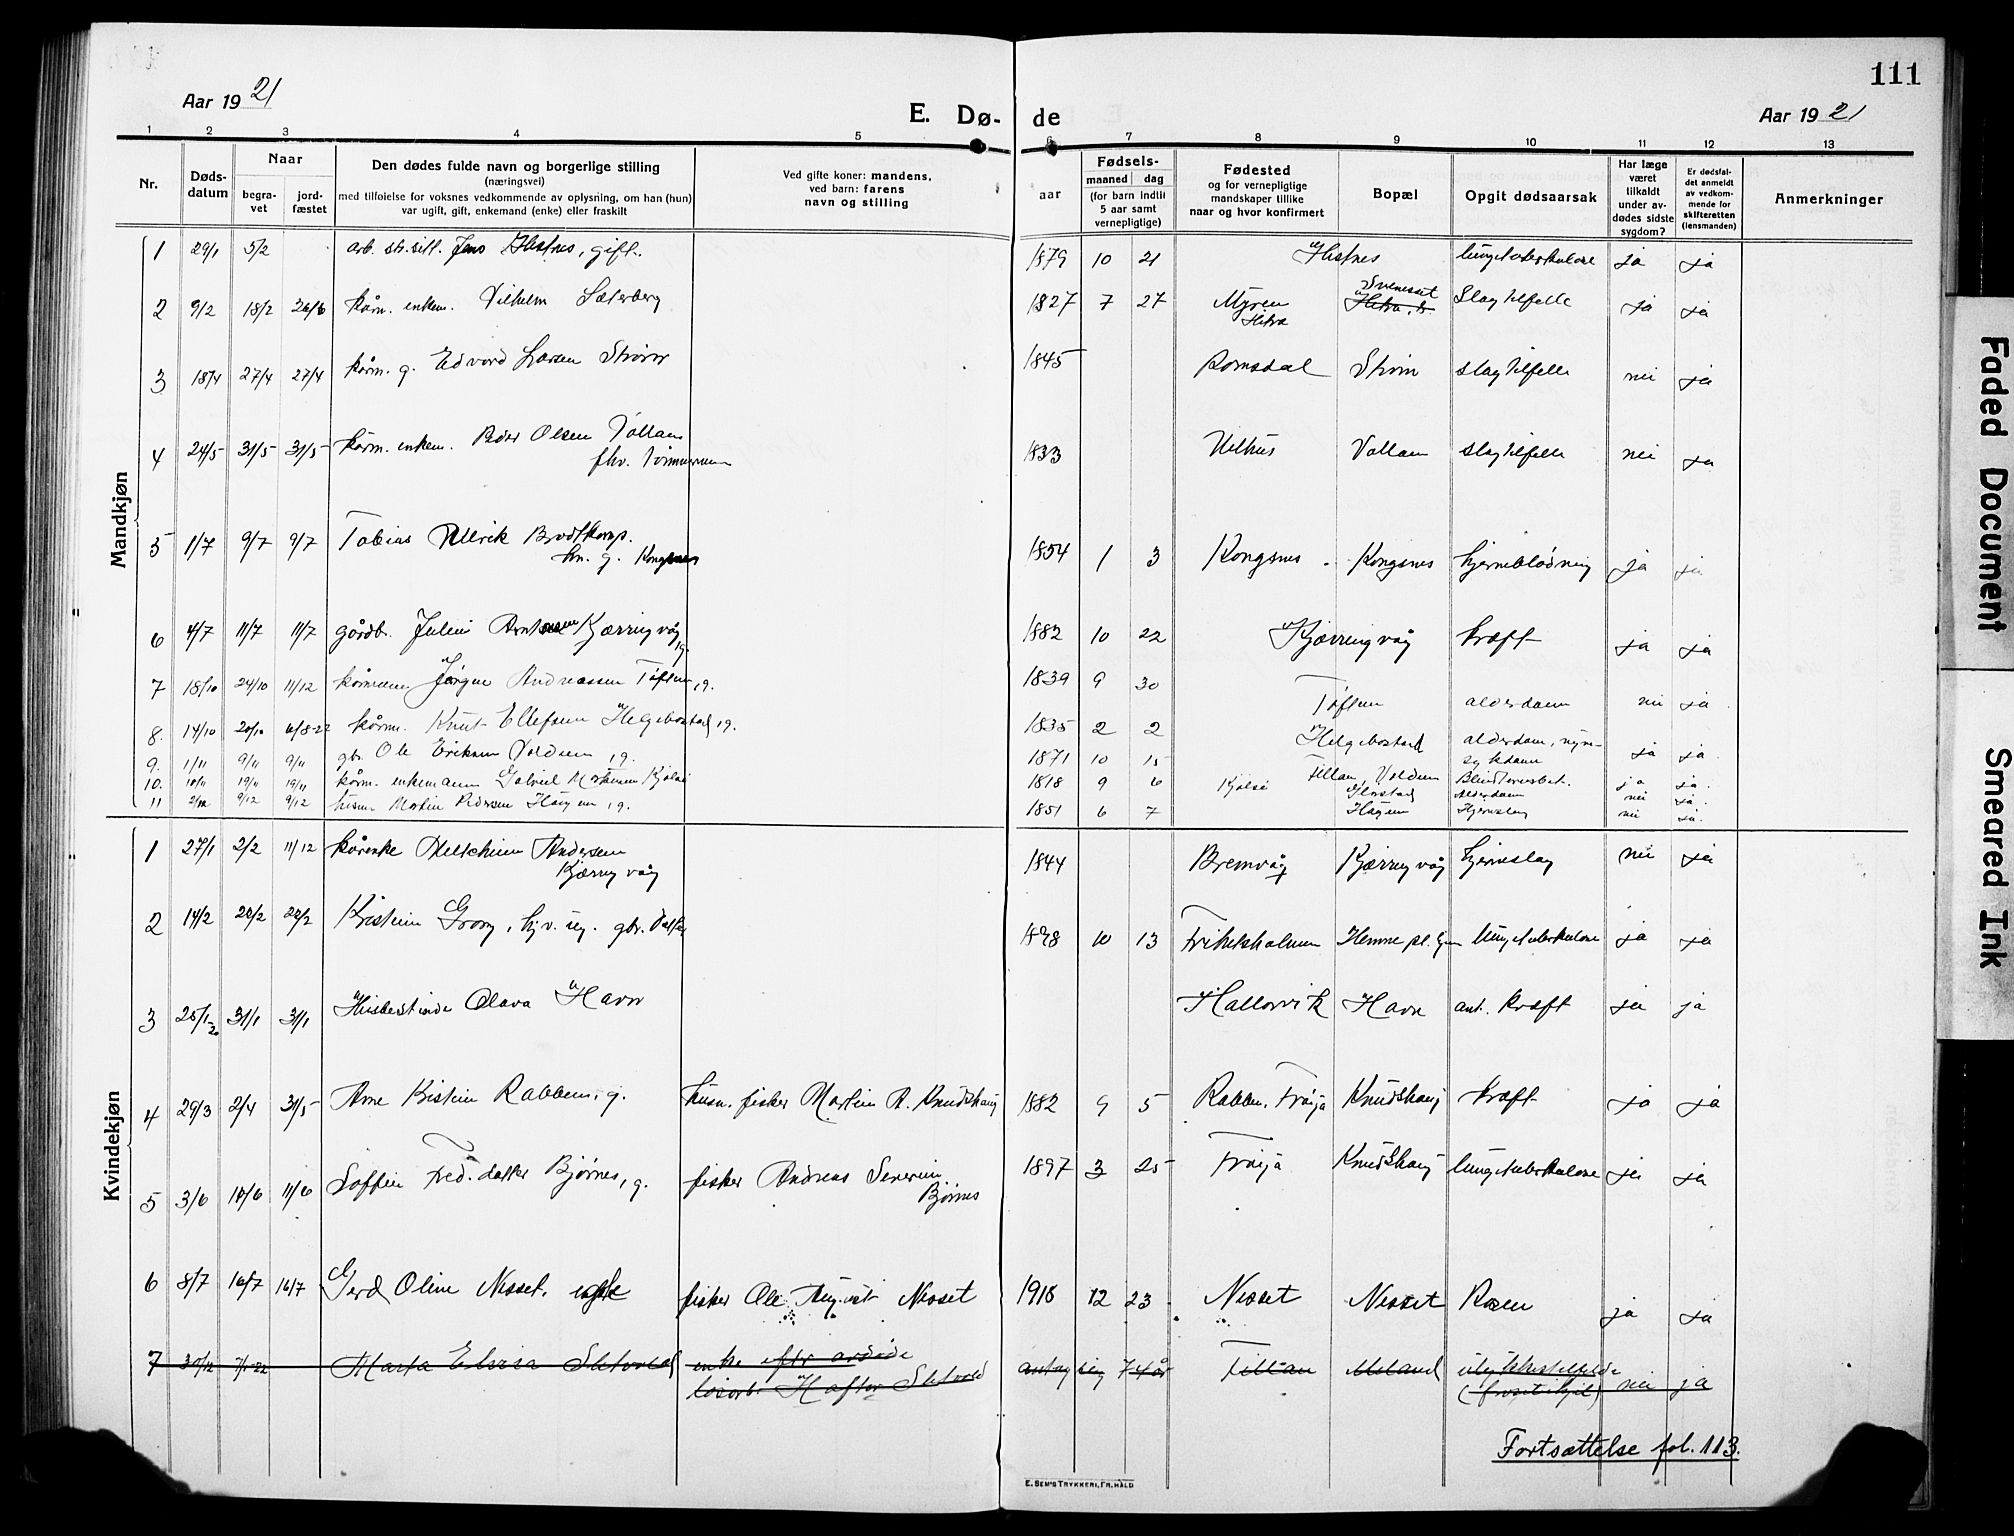 111
Aar 1921
E. Dø- de
Aar 1921
1 2 3 4 5 6 7 8 9 10 11 12 13
Nr.
Døds-datum
Naar
begra-vet
jord-fæstet
Den dødes fulde navn og borgerlige stilling
(næringsvei)
med tilføielse for voksnes vedkommende av oplysning, om han (hun)
var ugift, gift, enkemand (enke) eller fraskilt
Ved gifte koner: mandens,
ved barn: farens
navn og stilling
aar
Fødsels-
maaned dag
(for barn indtil
5 aar samt
vernepligtige)
Fødested
og for vernepligtige
mandskaper tillike
naar og hvor konfirmert
Bopæl
Opgit dødsaarsak
Har læge
været
tilkaldt
under av-
dødes sidste
sygdom?
Er dødsfal-
det anmeldt
av vedkom-
mende for
skifteretten
(lensmanden)
Anmerkninger
Mandkjøn
1 29/1 5/2 arb. Jens Hestnes, gift. 1879 10 21 Hestnes lungetuberkulose ja ja
2 9/2 18/2 26/6 kårm. enkem. Vilhelm Sæterberg 1827 7 27 Myren Hitra Hitra slagtilfelle ja ja
3 18/4 27/4 27/4 kårm. g. Edvard Larsen Strøm 1845 Romsdal Strøm slagtilfelle nei ja
4 24/5 31/5 31/5 kårm. enkem. Peder Olsen Vollan 1833 Melhus Vollan slagtilfelle nei ja
fhv. tømmermann
5 1/7 9/7 9/7 Tobias Ulrik Brodtkorp. 1854 1 3 Kongsnes Kongsnes hjerneblødning ja ja
hm. g. Kongsnes
6 4/7 11/7 11/7 gårdb. Julius Arntsen Kjærringvåg, g. 1882 10 22 Kjærringvåg kræft ja ja
7 18/10 24/10 11/12 kårmann Jørgen Andreassen Tøften, g. 1839 9 30 Tøften alderdom nei ja
8. 14/10 20/10 6/8-22 kårm. Knut Ellefsen Helgebostad, g. 1835 2 2 Helgebostad alderdom, nyre-
sykdom
9. 1/11 9/11 9/11 gbr. Ole Eriksen Volden, g. 1871 10 15 Fillan, Volden ja ja
10. 10/11 19/11 19/11 kårm. enkemann Gabriel Kjølsø 1818 9 6 Kjølsø Alderdom ja ja
11 2/12 9/12 9/12 husm. Martin Pedersen Haugen, g. 1851 6 7 Haugen Hjerneslag nei ja
Kvindekjøn
1 27/1 2/2 11/12 kårenke Andersen 1844 Bremvåg Kjærringvåg hjerneslag nei ja
Kjærringvåg
2 14/2 22/2 22/2 Kristine 1898 10 13 Hemne lungetuberkulose ja ja
3 25/1-20 31/1 31/1 Husbestinde Olava Havn Hallorvik Havn ant. kræft ja ja
4 29/3 2/4 31/5 Ane Kristine Rabben, g. husm. fisker Martin A. Knudshaug 1882 9 5 Rabben, Frøya Knudshaug kræft ja ja
5 3/6 11/6 11/6 Soffie Fred. datter Bjørnes, g. fisker Andreas Severin 1897 3 25 Frøya Knudshaug lungetuberkulose ja ja
Bjørnes
6 8/7 16/7 16/7 Gerd Oline Nesset, fisker Ole August Nesset 1918 12 23 Nesset Nesset Rosen ja ja
7 30/12 7/1-22 Marta Elvisa Sletvold enke efter avdøde antagelig 74 år Fillan Meland ulykkestilfelde nei ja
Sletvold (frosset ihjel)
Fortsættelse fol. 113.
E. SEM'S TRYKKERI, FR.HALD
Faded Document
Smeared Ink